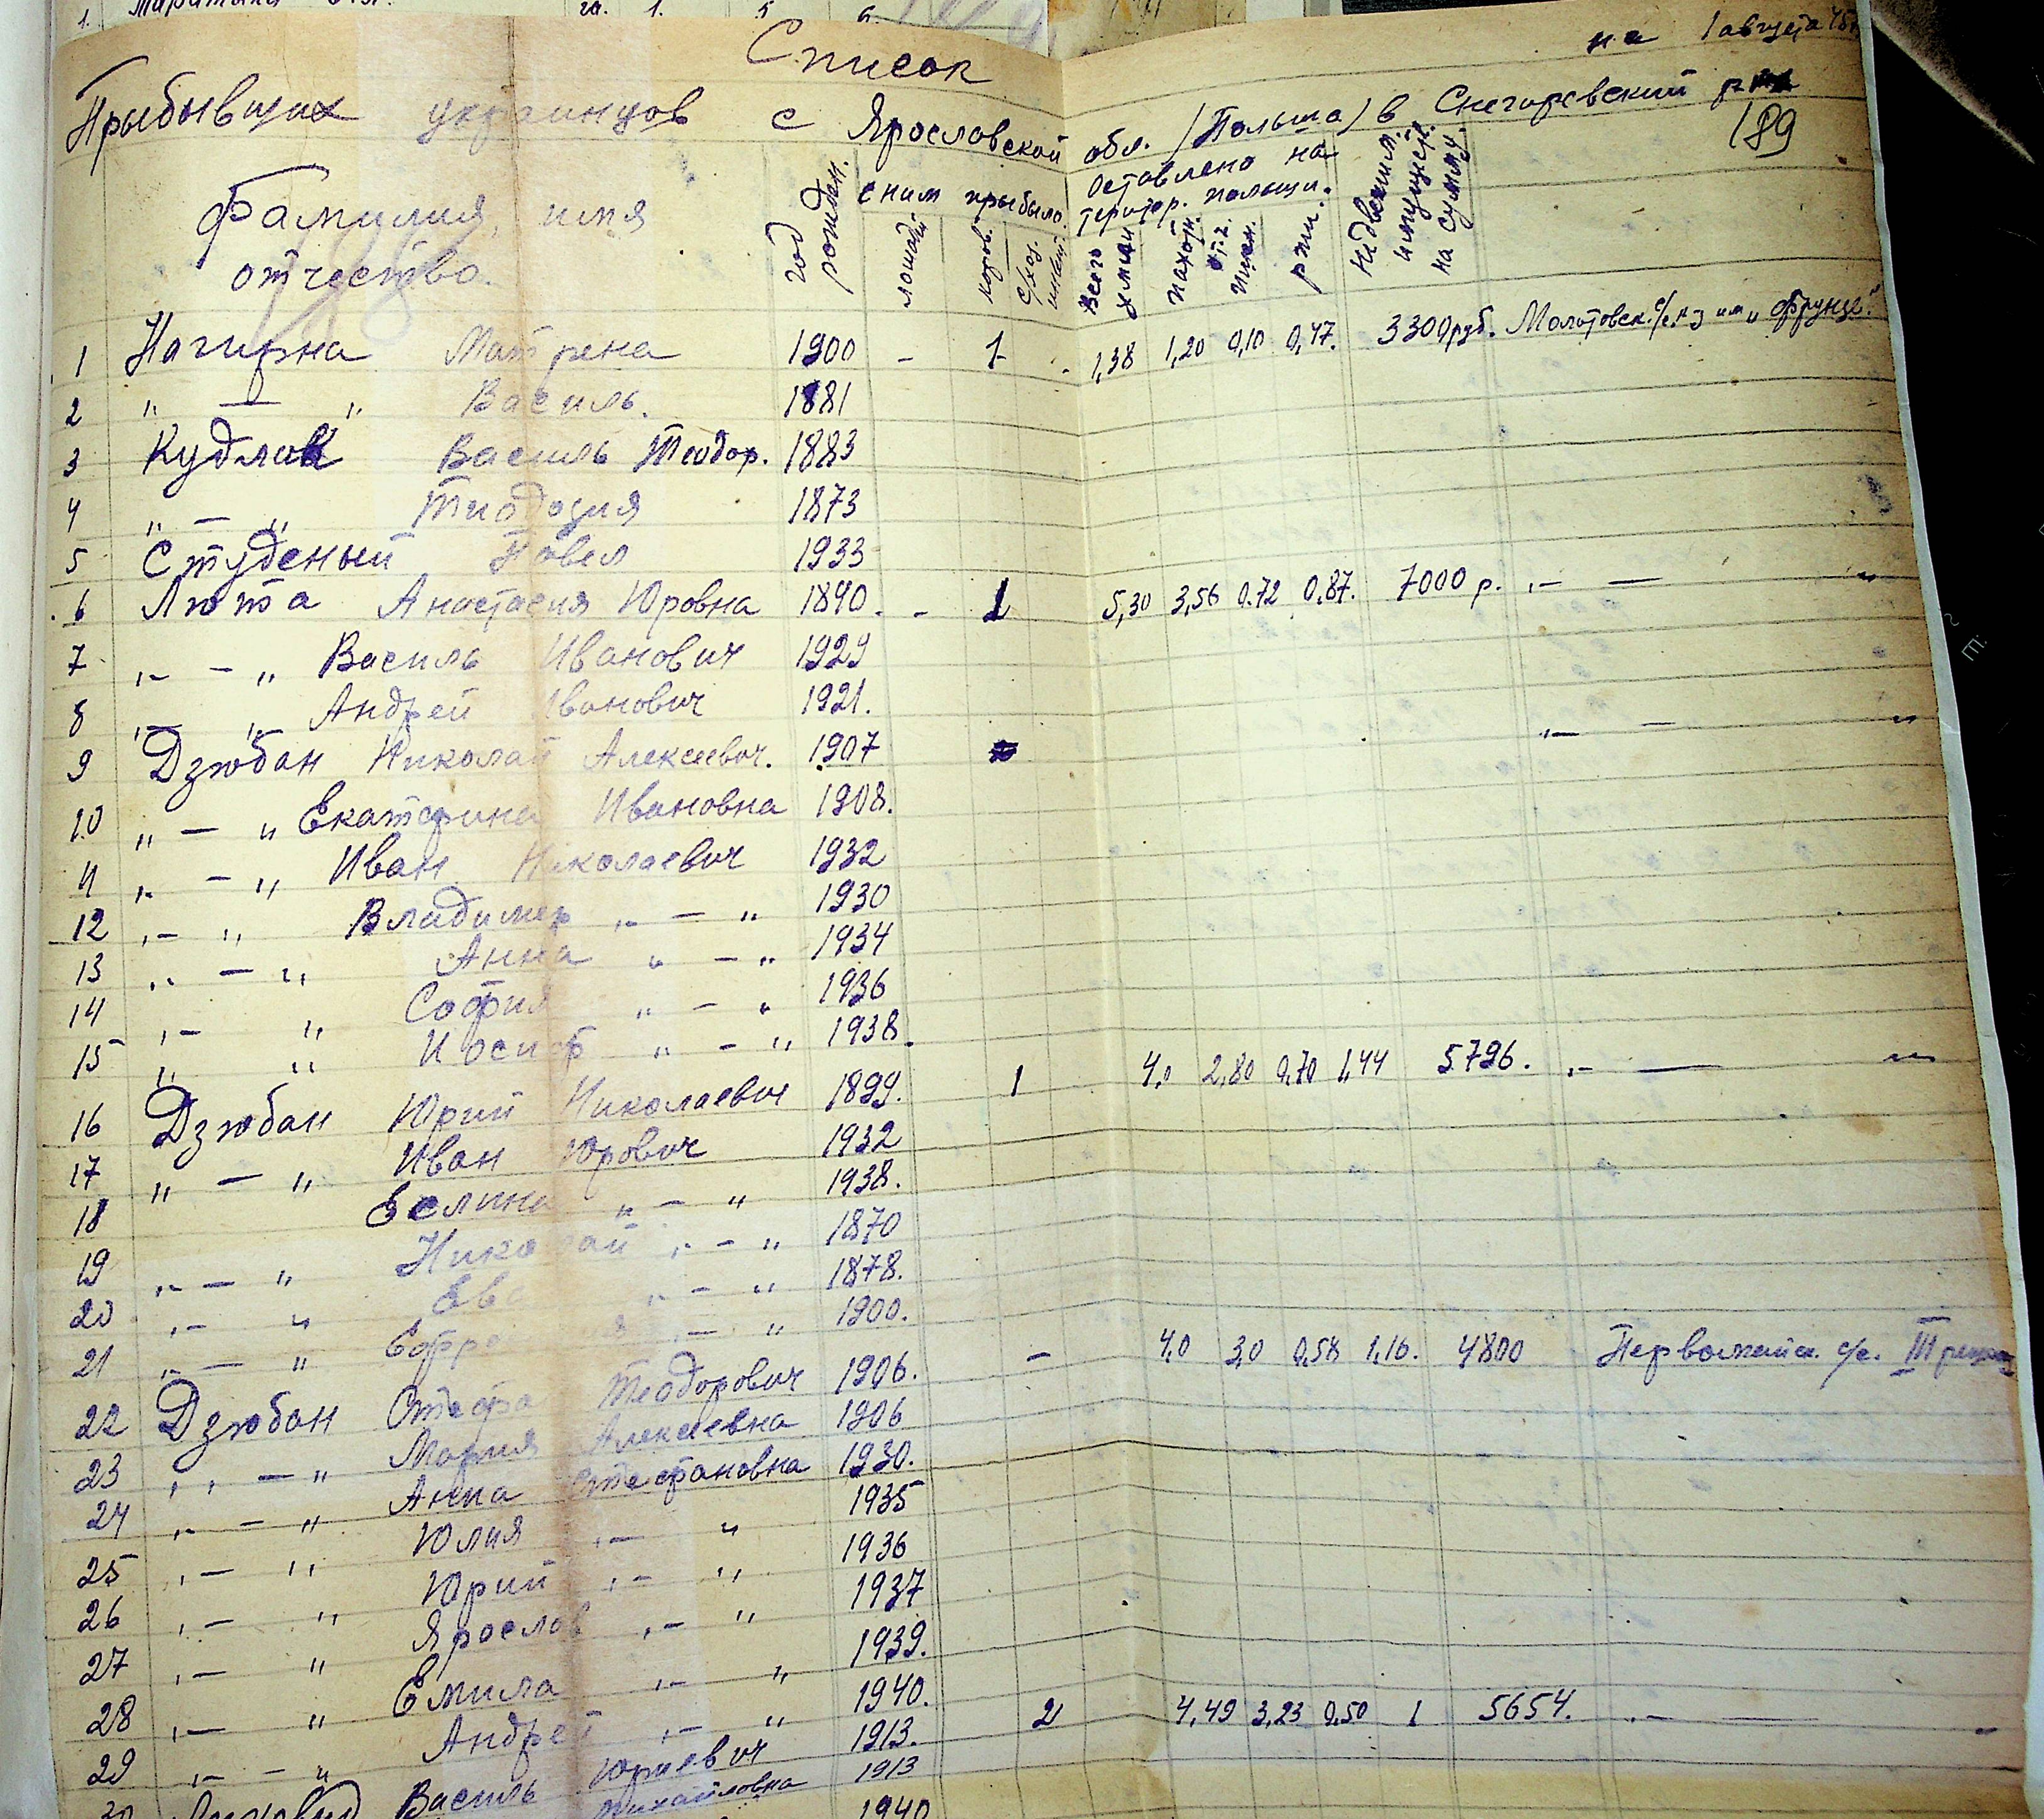 Список
на 1 августа 45
Прыбывших украинцов с Ярославской обл. /Польша/ в Снегоревский
189
Фамилия, имя отчество.
год рожден.
с ним прыбыло
лошадей
коров.
с/хоз. инвент.
оставлено на територ. польши.
всего
пахотн.
пшен.
ржи.
недвежим. имущест. на сумму.
1 Нагирна Матрена 1900 - 1 - 1,38 1,20 0,10 0,47. 3300 руб. Молотовск. с/с. к-з им „Фрунзе"
2 " — " Василь. 1881
3 Кудлак Василь Теодор. 1883
4 " — " Тиодозия 1873
5 Студеный Павел 1933
6 Люта Анастасия Юровна 1890. - 1 5,30 3,56 0.72 0,87. 7000 р. " — "
7 " — " Василь Иванович 1929
8 " — " Андрей Иванович 1921.
9 Дзюбан Николай Алексеевич. 1907 " — "
10 " — " Екатерина Ивановна 1908.
11 " — " Иван Николаевич 1932
12 " — " Владимер " — " 1930
13 " — " Анна " — " 1934
14 " — " София " — " 1936
15 " " Иосиф " — " 1938.
16 Дзюбан Юрий Николаевич 1899. 1 4,0 2,80 0,70 1,44 5796. " — "
17 " — " Иван Юрович 1932
18 " — " 1938.
19 " — " Николай " — " 1870
20 " — " Ева " — " 1878.
21 " — " " — " 1900.
22 Дзюбан Стефан Теодорович 1906. - 4,0 3,0 0,58 1,16. 4800 Первомайск. с/с.
23 " — " Мария Алексеевна 1906
24 " — " Анна Стефановна 1930.
25 " — " Юлия " — " 1935
26 " — " Юрий " — " 1936
27 " — " Ярослав " — " 1937
28 " — " Емила " — " 1939.
29 " — " Андрей " — " 1940.
30 Василь Юриевич 1913. 2 4,49 3,23 0,50 1 5654. " — "
Михайловна 1913
1940